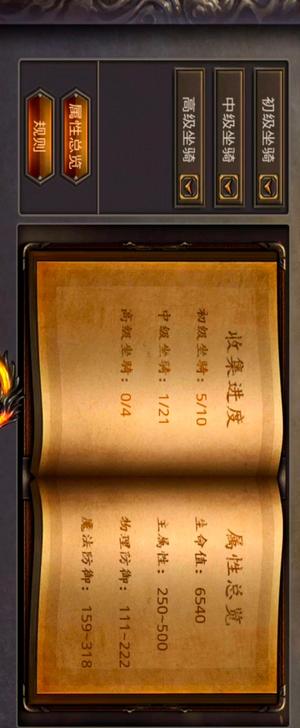 初级坐骑
中级坐骑
高级坐骑
属性总览
规则
收集进度
初级坐骑：5/10
中级坐骑：1/21
高级坐骑：0/4
属性总览
生命值：6540
主属性：250~500
物理防御：111~222
魔法防御：159~318